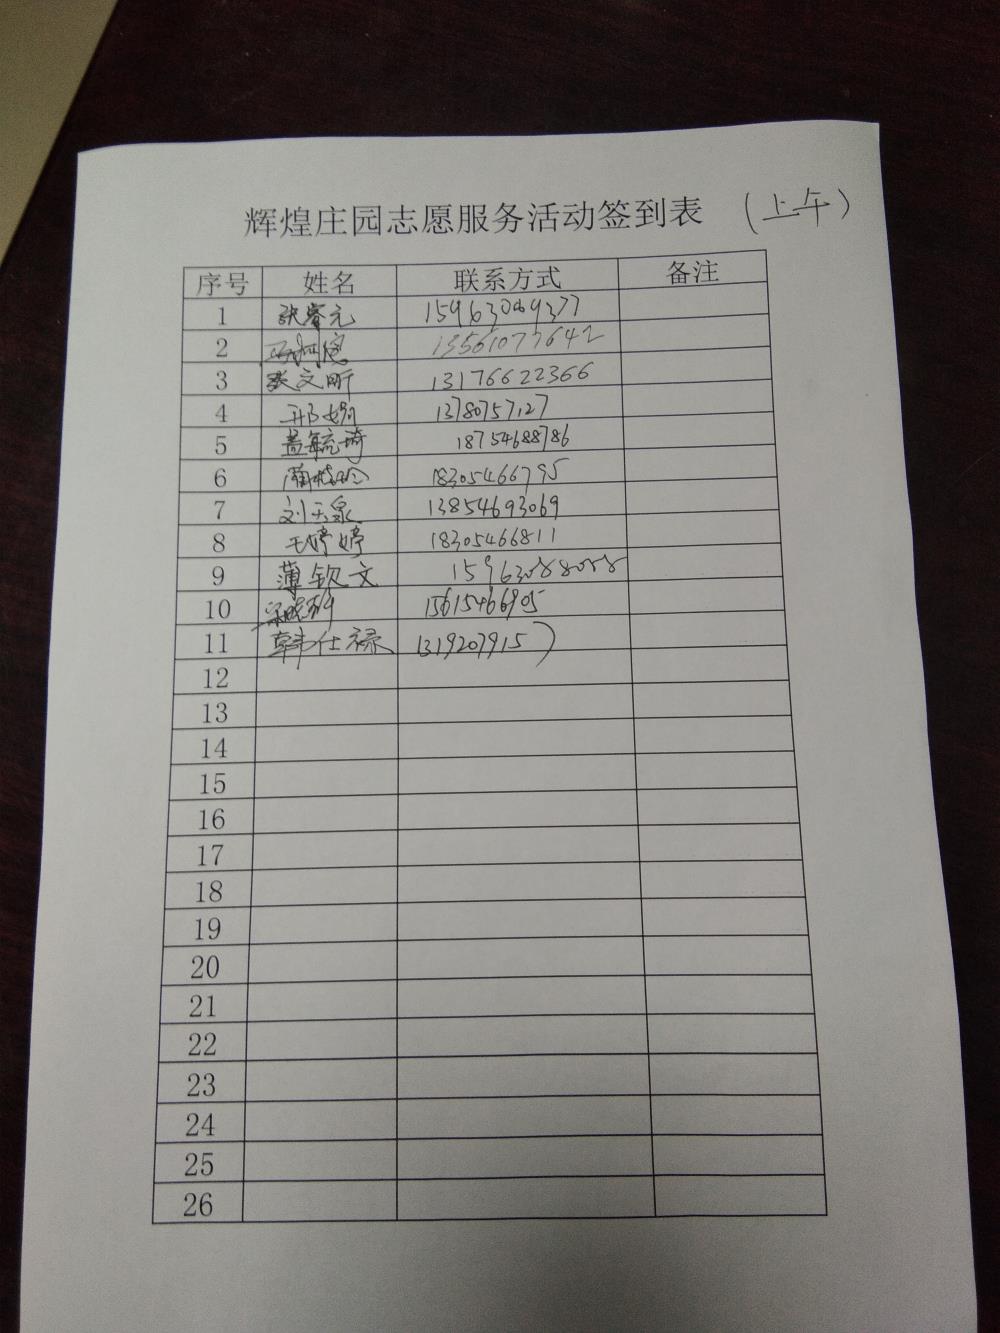 辉煌庄园志愿服务活动签到表 (上午)
序号 姓名 联系方式 备注
1 张睿元 15963069377
2 13561077642
3 张文昕 13176622366
4 邢娟 13780757127
5 盖毓琦 18754688786
6 18305466795
7 刘天泉 13854693069
8 王婷婷 18305466811
9 薄钦文 15963088058
10 15615466905
11 韩仕禄 13192079157
12
13
14
15
16
17
18
19
20
21
22
23
24
25
26